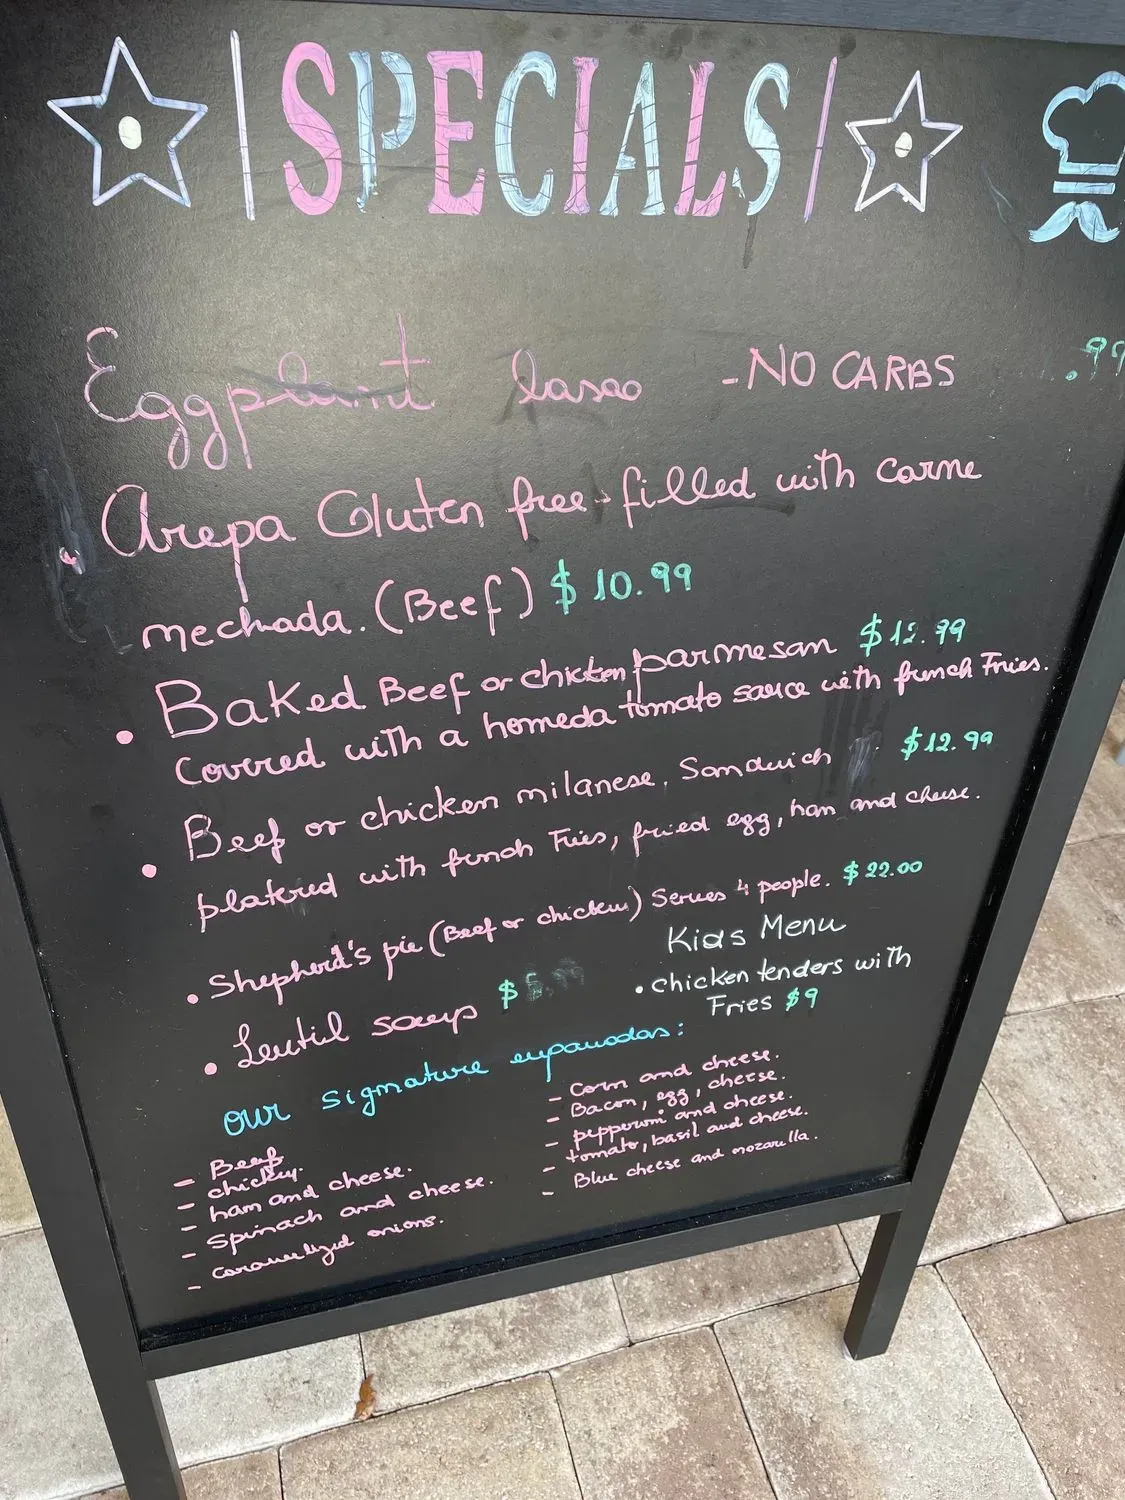 SPECIALS
Eggplant lasao - NO CARBS .99
Arepa Gluten free-filled with carne
mechada. (Beef) $10.99
Baked Beef or chicken parmesan $12.99
Covered with a homeda tomato sauce with french Fries.
Beef or chicken milanese. Sandwich $12.99
platered with french Fries, fried egg, ham and cheese.
Shepherd's pie (Beef or chicken) Serves 4 people. $22.00
Lentil soup $
Kids Menu
chicken tenders with
Fries $9
Our signature empanadas:
- Beef
- chicken.
- ham and cheese.
- Spinach and cheese.
- Caramelized onions.
- Corn and cheese.
- Bacon, egg, cheese.
- pepperoni and cheese.
- tomato, basil and cheese.
- Blue cheese and mozarella.